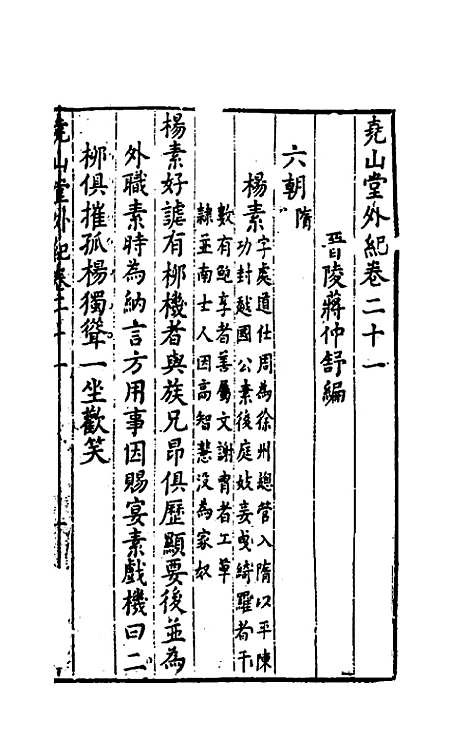 堯山堂外紀卷二十一
晋陵蔣仲舒編
六朝 隋
楊素 字處道仕周為徐州總管入隋以平陳
功封越國公素後庭妓妾曵綺羅者千
數有鮑享者善屬文謝胄者工草
隸並南士人因高智慧没為家奴
楊素好謔有栁機者與族兄昂俱歷顯要後並為
外職素時為納言方用事因賜宴素戲機曰二
栁俱摧孤楊獨聳一坐歡笑
堯山堂外紀卷二十一